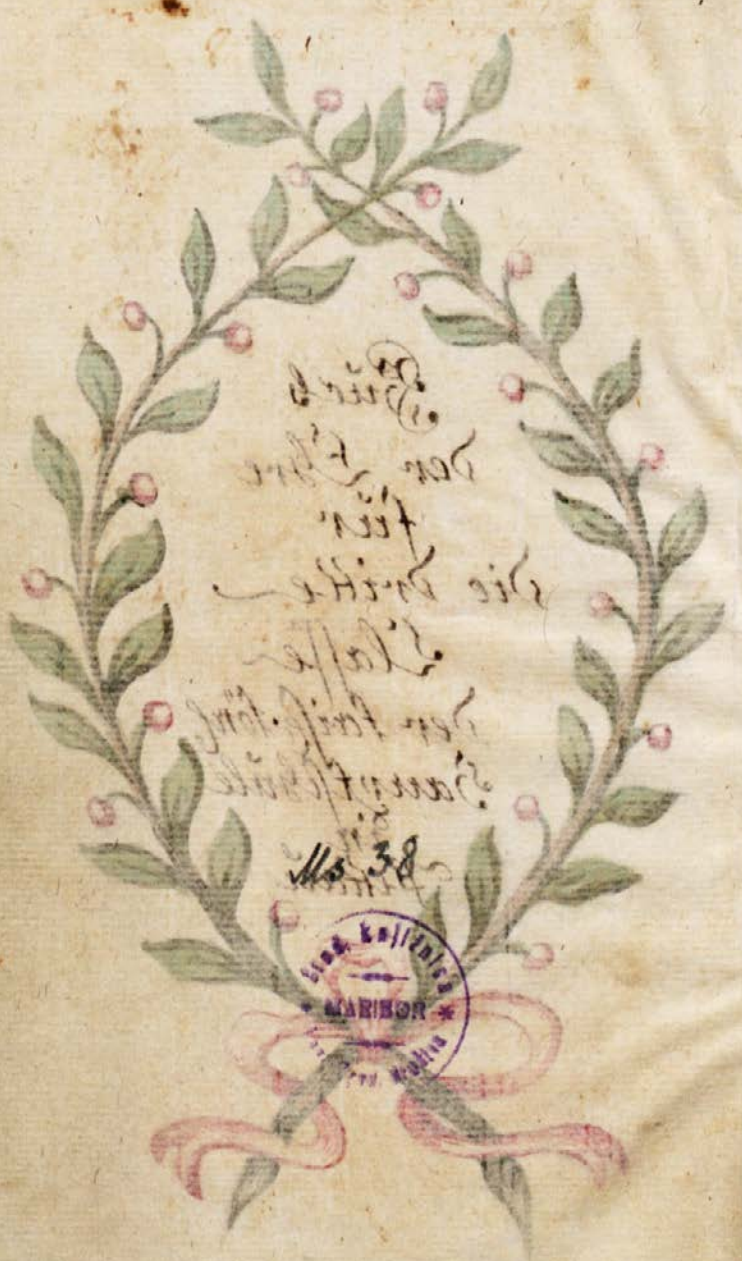 Buch
der Ehre
für
die dritte
Classe
der kaiſ. kön.
Hauptſchule
in
Ms 38
Štud. knjižnica
MARIBOR *